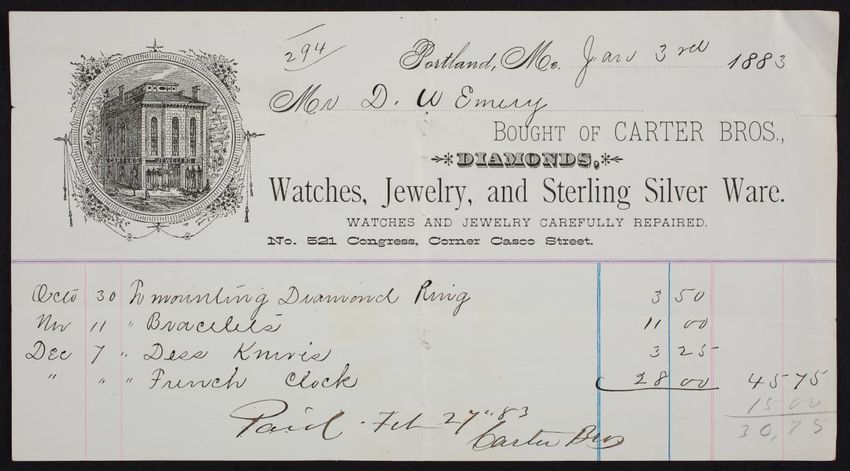 294
Portland, Me. Jan 3rd 1883
Mr D. W Emery
BOUGHT OF CARTER BROS.,
DIAMONDS,
Watches, Jewelry, and Sterling Silver Ware.
WATCHES AND JEWELRY CAREFULLY REPAIRED.
No. 521 Congress, Corner Casco Street.
CARTER'S JEWELERS
Octo 30 To mounting Diamond Ring 3 50
Nov 11 " Bracelets 11 00
Dec 7 " Dess Knives 3 25
" " " French Clock 28 00 45 75
15 00
30,75
Paid Feb 27" 83
Carter Bros